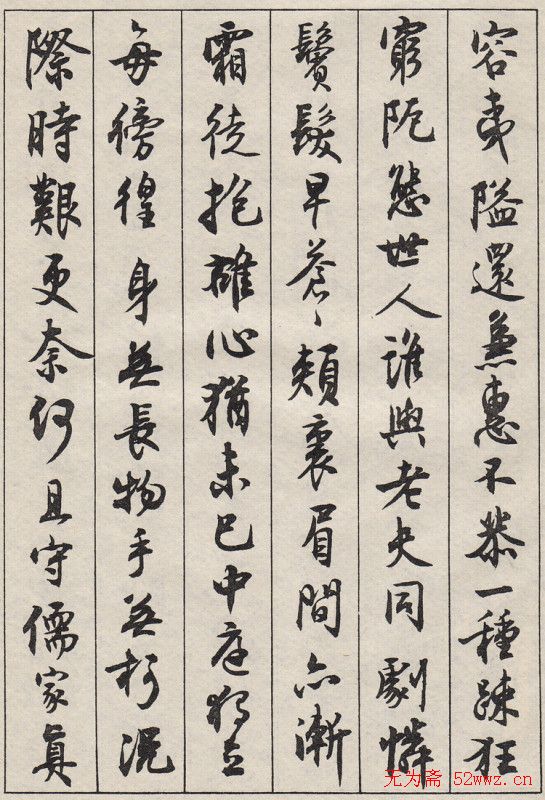 容夷隘還兼惠不恭一種踈狂
窮阮態世人誰與老夫同劇憐
鬢髮早蒼々頰裏眉間亦漸
霜徒抱雄心猶未已中庭獨立
每徬徨身無長物手無柯況
際時艱更奈何且守儒家真
无为斋 52wwz.cn